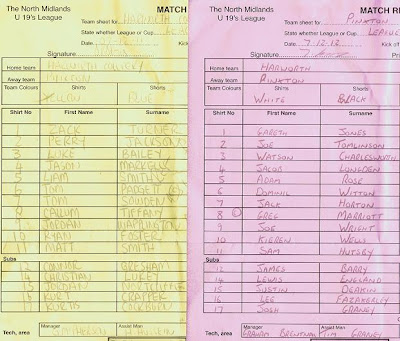 The North Midlands
U 19's League
MATCH
Team sheet for: HARWORTH
State whether League or Cup
Date
Signature
Home team HARWORTH COLLIERY
Away team PINXTON
Team Colours Shirts Shorts
YELLOW BLUE
Shirt No First Name Surname
1 ZACK TURNER
2 PERRY JACKSON
3 LUKE BAILEY
4 JASON MARKELL
5 LIAM SMITH
6 TOM PADGETT
7 TOM SOWDEN
8 CALLUM TIFFANY
9 JORDAN
10 RYAN FOSTER
11 MATT SMITH
Subs
12 CONNOR GRESHAM
14 CHRISTIAN LUKEY
15 JORDAN NORTCLIFFE
16 KURT CRAPPER
KURTIS COCKBURN
Tech, area Manager Assist Man
The North Midlands
U 19's League
MATCH RE
Team sheet for: PINXTON
State whether League or Cup LEAGUE
Date 7.12.12 Kick
Signature
Home team HARWORTH
Away team PINXTON
Team Colours Shirts Shorts
WHITE BLACK
Shirt No First Name Surname
1 GARETH JONES
2 JOE TOMLINSON
3 WATSON CHARLESWORTH
4 JACOB LONGDEN
5 ADAM ROSE
6 DOMINIC WITTON
7 JACK HORTON
8 C GREG MARRIOTT
9 JOE WRIGHT
10 KIEREN WELLS
11 SAM HUTSBY
Subs
12 JAMES BARRY
14 LEWIS ENGLAND
15 JUSTIN DEAKIN
16 LEE FAZAKERLEY
17 JOSH GRANEY
Tech, area Manager Assist Man
GRAHAM TIM GRANEY